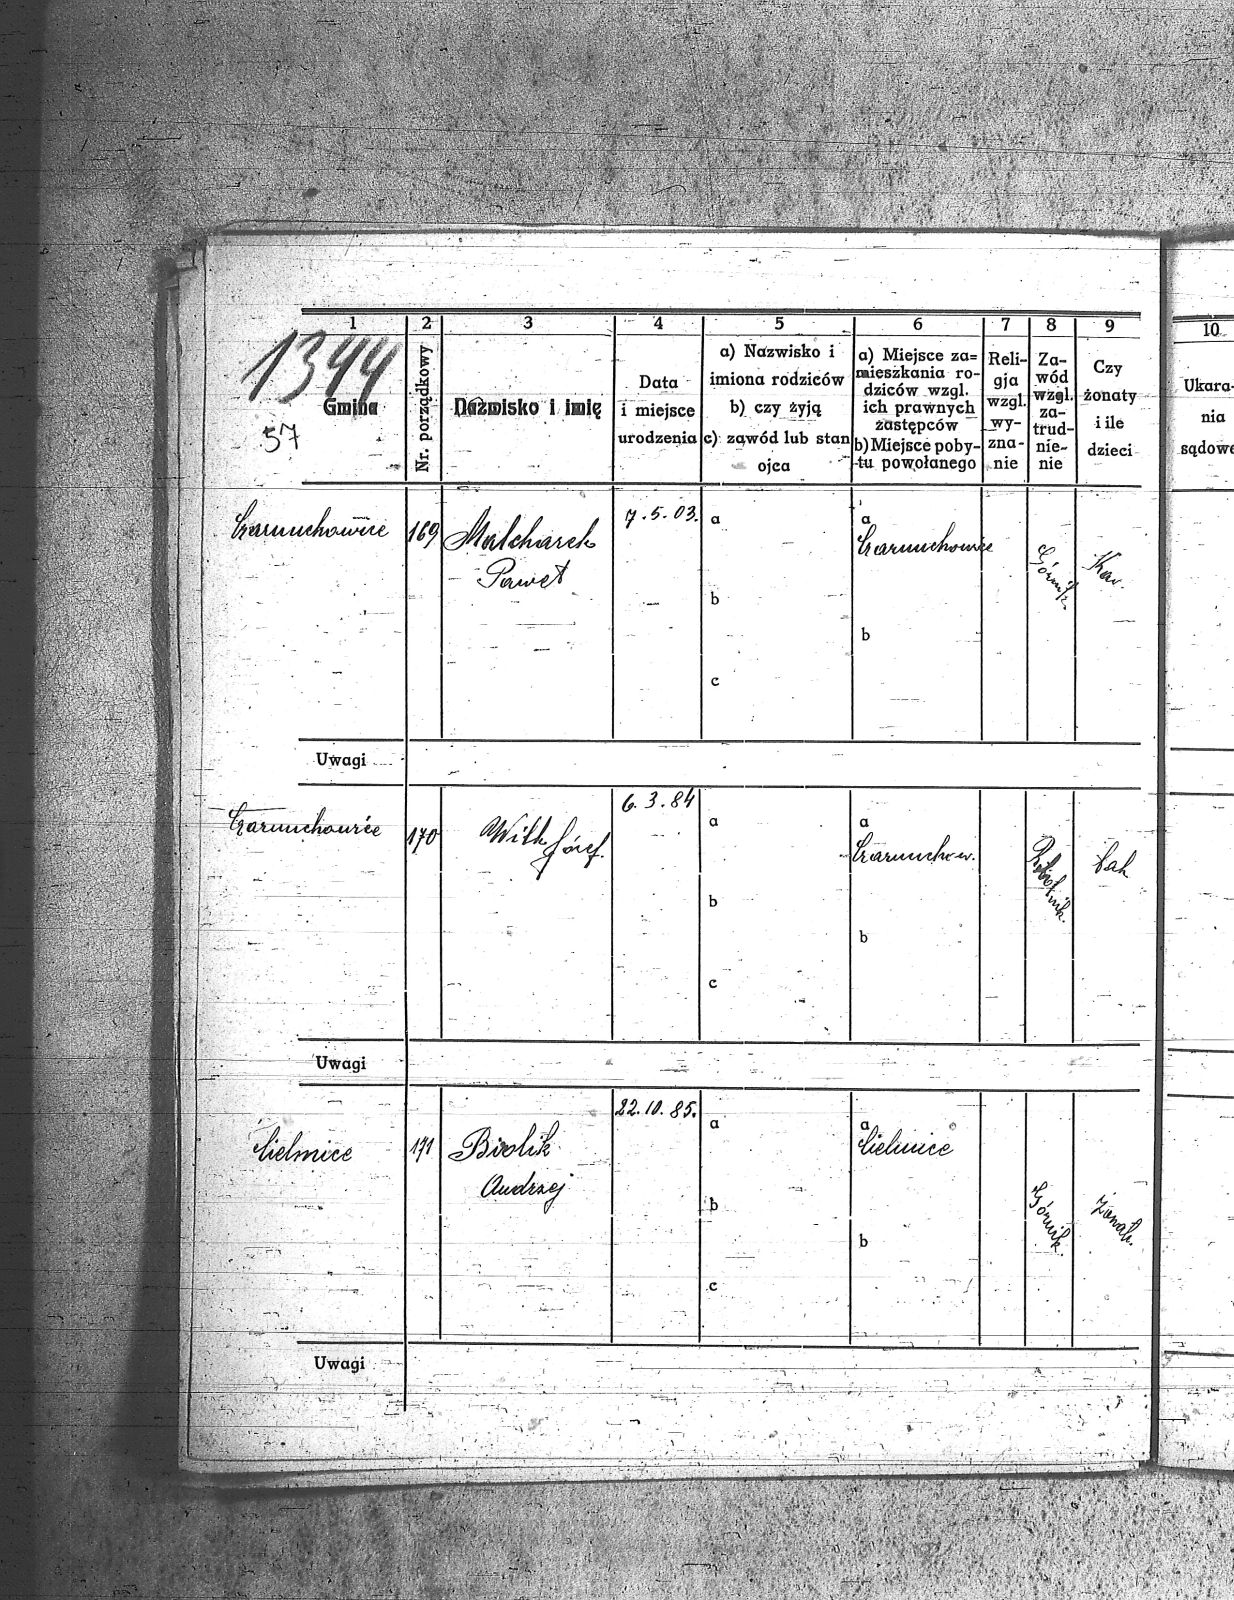 1 2 3 4 5 6 7 8 9 10
1344
57
Gmina
Nr. porządkowy
Nazwisko i imię
Data
i miejsce
urodzenia
a) Nazwisko i
imiona rodziców
b) czy żyją
c) zawód lub stan
ojca
a) Miejsce za=
mieszkania ro-
dziców wzgl.
ich prawnych
zastępców
b) Miejsce poby-
tu powołanego
Reli-
gja
wzgl.
wy-
zna-
nie
Za-
wód
wzgl.
za-
trud-
nie-
nie
Czy
żonaty
i ile
dzieci
Ukara-
nia
sądowe
Czarnuchowice
169
Malcharek
Paweł
7.5.03.
a
b
c
a
Czarnuchowice
b
Górnik
Kaw.
Uwagi
Czarnuchowice
170
Wilk
Józef.
6.3.84
a
b
c
a
Czarnuchow.
b
Robotnik.
Uwagi
Cielmice
171
Biolik
Andrzej
22.10.85.
a
b
c
a
Cielmice
b
Górnik
żonat.
Uwagi